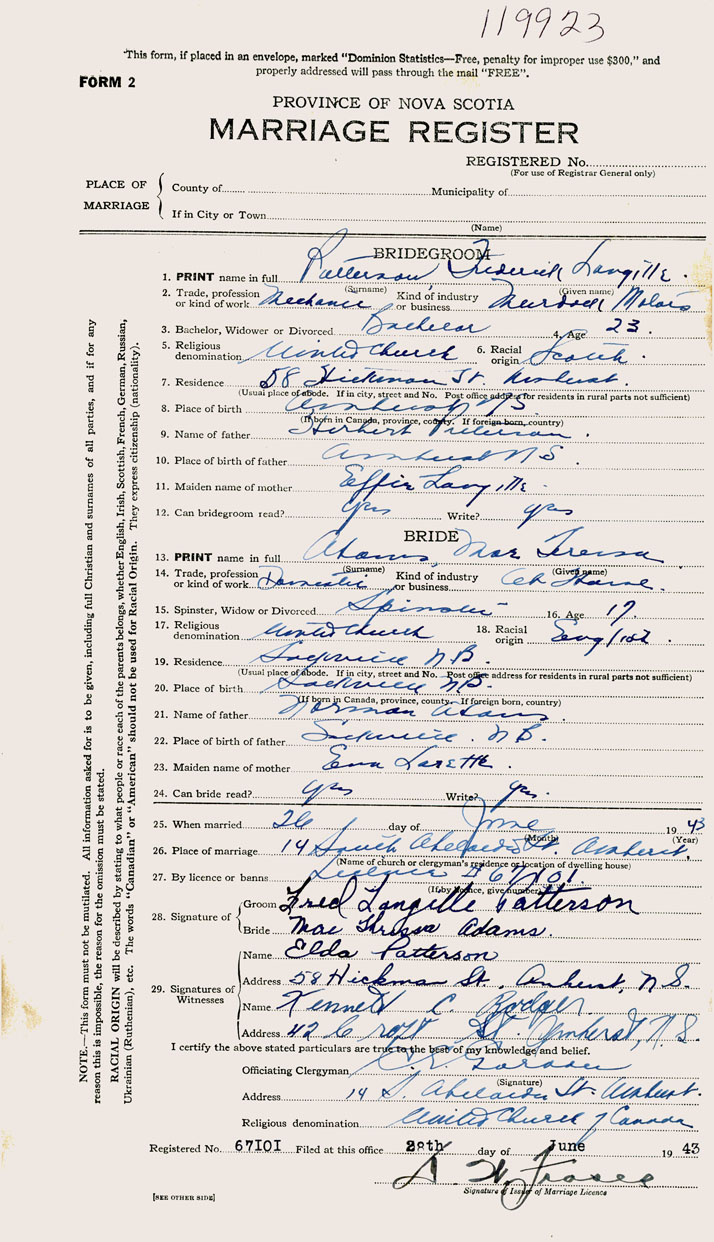 119923
This form, if placed in an envelope, marked "Dominion Statistics—Free, penalty for improper use $300," and
properly addressed will pass through the mail "FREE".
FORM 2
PROVINCE OF NOVA SCOTIA
MARRIAGE REGISTER
REGISTERED No.
(For use of Registrar General only)
PLACE OF MARRIAGE
County of Municipality of
If in City or Town
(Name)
BRIDEGROOM
1. PRINT name in full Patterson Frederick Langille.
(Surname) (Given name)
2. Trade, profession or kind of work Mechanic Kind of industry or business Murdock Motors
3. Bachelor, Widower or Divorced Bachelor 4. Age 23.
5. Religious denomination United Church 6. Racial origin Scotch.
7. Residence 58 Hickman St. Amherst.
(Usual place of abode. If in city, street and No. Post office address for residents in rural parts not sufficient)
8. Place of birth Amherst N S.
(If born in Canada, province, county. If foreign born, country)
9. Name of father Herbert Patterson.
10. Place of birth of father Amherst N S.
11. Maiden name of mother Effie Langille
12. Can bridegroom read? yes Write? yes
BRIDE
13. PRINT name in full Adams, Mae Teresa
(Surname) (Given name)
14. Trade, profession or kind of work Domestic Kind of industry or business At Home.
15. Spinster, Widow or Divorced Spinster 16. Age 17
17. Religious denomination United Church 18. Racial origin English
19. Residence Sackville N B.
(Usual place of abode. If in city, street and No. Post office address for residents in rural parts not sufficient)
20. Place of birth Sackville N B.
(If born in Canada, province, county. If foreign born, country)
21. Name of father Norman Adams
22. Place of birth of father Sackville. N B.
23. Maiden name of mother Eva
24. Can bride read? yes Write? yes.
25. When married 26 day of June 1943
(Month) (Year)
26. Place of marriage 14 South Adelaide St. Amherst,
(Name of church or clergyman's residence or location of dwelling house)
27. By licence or banns Licence # 67101.
(If by licence, give number)
28. Signature of
Groom Fred Langille Patterson
Bride Mae Theresa Adams.
29. Signatures of Witnesses
Name Elda Patterson
Address 58 Hickman St., Amherst, N.S.
Name Kenneth C.
Address 42 Croft St. Amherst, N.S.
I certify the above stated particulars are true to the best of my knowledge and belief.
Officiating Clergyman
(Signature)
Address 14 S. Adelaide St. Amherst.
Religious denomination United Church of Canada
Registered No. 67101 Filed at this office 28th day of June 1943
Signature of Issuer of Marriage Licence
[SEE OTHER SIDE]
NOTE.—This form must not be mutilated. All information asked for is to be given, including full Christian and surnames of all parties, and if for any
reason this is impossible, the reason for the omission must be stated.
RACIAL ORIGIN will be described by stating to what people or race each of the parents belongs, whether English, Irish, Scottish, French, German, Russian,
Ukrainian (Ruthenian), etc. The words "Canadian" or "American" should not be used for Racial Origin. They express citizenship (nationality).